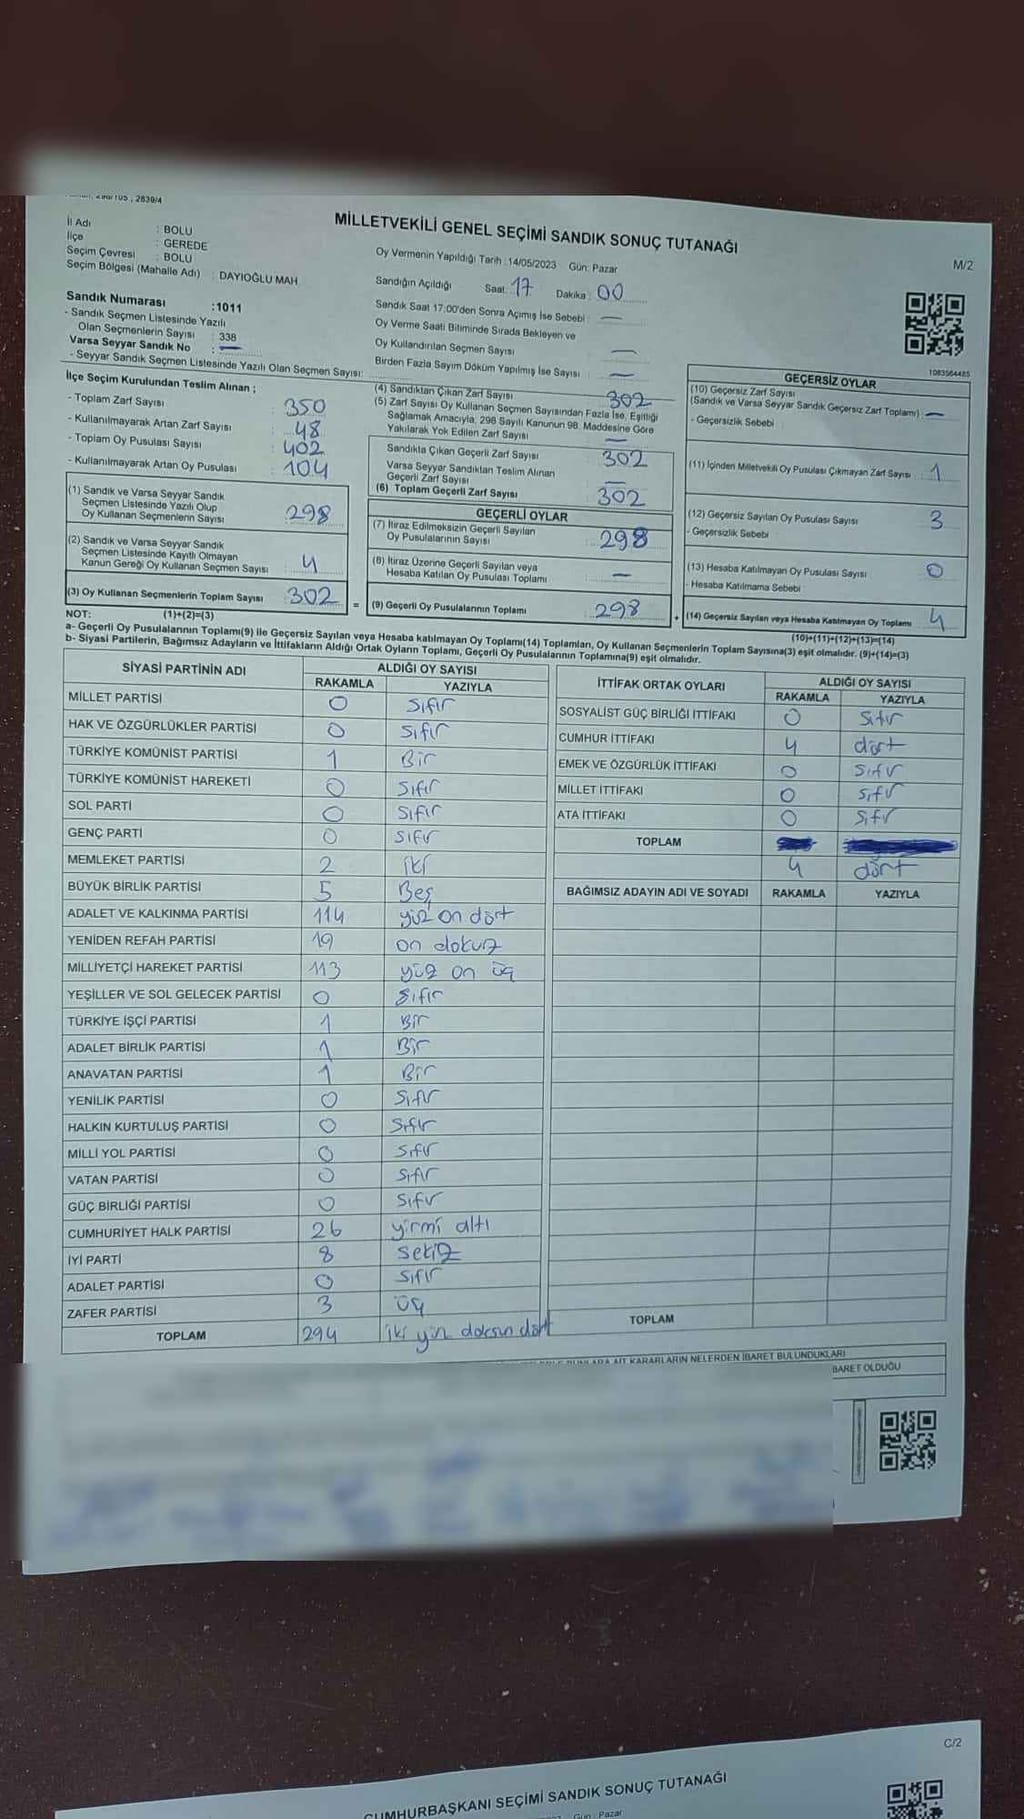 2839/4
MİLLETVEKİLİ GENEL SEÇİMİ SANDIK SONUÇ TUTANAĞI
M/2
İl Adı : BOLU
İlçe : GEREDE
Seçim Çevresi : BOLU
Seçim Bölgesi (Mahalle Adı) : DAYIOĞLU MAH
Sandık Numarası :1011
- Sandık Seçmen Listesinde Yazılı
Olan Seçmenlerin Sayısı : 338
Varsa Seyyar Sandık No : —
- Seyyar Sandık Seçmen Listesinde Yazılı Olan Seçmen Sayısı:
Oy Vermenin Yapıldığı Tarih :14/05/2023 Gün: Pazar
Sandığın Açıldığı Saat: 17 Dakika: 00
Sandık Saat 17:00'den Sonra Açımış İse Sebebi : —
Oy Verme Saati Bitiminde Sırada Bekleyen ve
Oy Kullandırılan Seçmen Sayısı —
Birden Fazla Sayım Döküm Yapılmış İse Sayısı : —
1083564485
İlçe Seçim Kurulundan Teslim Alınan ;
- Toplam Zarf Sayısı : 350
- Kullanılmayarak Artan Zarf Sayısı : 48
- Toplam Oy Pusulası Sayısı : 402
- Kullanılmayarak Artan Oy Pusulası : 104
(1) Sandık ve Varsa Seyyar Sandık
Seçmen Listesinde Yazılı Olup
Oy Kullanan Seçmenlerin Sayısı : 298
(2) Sandık ve Varsa Seyyar Sandık
Seçmen Listesinde Kayıtlı Olmayan
Kanun Gereği Oy Kullanan Seçmen Sayısı : 4
(3) Oy Kullanan Seçmenlerin Toplam Sayısı : 302
(4) Sandıktan Çıkan Zarf Sayısı : 302
(5) Zarf Sayısı Oy Kullanan Seçmen Sayısından Fazla İse, Eşitliği
Sağlamak Amacıyla, 298 Sayılı Kanunun 98. Maddesine Göre
Yakılarak Yok Edilen Zarf Sayısı : —
Sandıkta Çıkan Geçerli Zarf Sayısı : 302
Varsa Seyyar Sandıktan Teslim Alınan
Geçerli Zarf Sayısı : —
(6) Toplam Geçerli Zarf Sayısı : 302
GEÇERLİ OYLAR
(7) İtiraz Edilmeksizin Geçerli Sayılan
Oy Pusulalarının Sayısı : 298
(8) İtiraz Üzerine Geçerli Sayılan veya
Hesaba Katılan Oy Pusulası Toplamı : —
= (9) Geçerli Oy Pusulalarının Toplamı : 298
GEÇERSİZ OYLAR
(10) Geçersiz Zarf Sayısı
(Sandık ve Varsa Seyyar Sandık Geçersiz Zarf Toplamı) : —
- Geçersizlik Sebebi :
(11) İçinden Milletvekili Oy Pusulası Çıkmayan Zarf Sayısı : 1
(12) Geçersiz Sayılan Oy Pusulası Sayısı : 3
- Geçersizlik Sebebi
(13) Hesaba Katılmayan Oy Pusulası Sayısı : 0
- Hesaba Katılmama Sebebi
+ (14) Geçersiz Sayılan veya Hesaba Katılmayan Oy Toplamı : 4
NOT: (1)+(2)=(3)
(10)+(11)+(12)+(13)=(14)
a- Geçerli Oy Pusulalarının Toplamı(9) ile Geçersiz Sayılan veya Hesaba katılmayan Oy Toplamı(14) Toplamları, Oy Kullanan Seçmenlerin Toplam Sayısına(3) eşit olmalıdır. (9)+(14)=(3)
b- Siyasi Partilerin, Bağımsız Adayların ve İttifakların Aldığı Ortak Oyların Toplamı, Geçerli Oy Pusulalarının Toplamına(9) eşit olmalıdır.
SİYASİ PARTİNİN ADI ALDIĞI OY SAYISI
RAKAMLA YAZIYLA
MİLLET PARTİSİ 0 Sıfır
HAK VE ÖZGÜRLÜKLER PARTİSİ 0 Sıfır
TÜRKİYE KOMÜNİST PARTİSİ 1 Bir
TÜRKİYE KOMÜNİST HAREKETİ 0 Sıfır
SOL PARTİ 0 Sıfır
GENÇ PARTİ 0 Sıfır
MEMLEKET PARTİSİ 2 iki
BÜYÜK BİRLİK PARTİSİ 5 Beş
ADALET VE KALKINMA PARTİSİ 114 yüz on dört
YENİDEN REFAH PARTİSİ 19 on dokuz
MİLLİYETÇİ HAREKET PARTİSİ 113 yüz on üç
YEŞİLLER VE SOL GELECEK PARTİSİ 0 Sıfır
TÜRKİYE İŞÇİ PARTİSİ 1 Bir
ADALET BİRLİK PARTİSİ 1 Bir
ANAVATAN PARTİSİ 1 Bir
YENİLİK PARTİSİ 0 Sıfır
HALKIN KURTULUŞ PARTİSİ 0 Sıfır
MİLLİ YOL PARTİSİ 0 Sıfır
VATAN PARTİSİ 0 Sıfır
GÜÇ BİRLİĞİ PARTİSİ 0 Sıfır
CUMHURİYET HALK PARTİSİ 26 yirmi altı
İYİ PARTİ 8 sekiz
ADALET PARTİSİ 0 Sıfır
ZAFER PARTİSİ 3 üç
TOPLAM 294 iki yüz doksan dört
İTTİFAK ORTAK OYLARI ALDIĞI OY SAYISI
RAKAMLA YAZIYLA
SOSYALİST GÜÇ BİRLİĞİ İTTİFAKI 0 Sıfır
CUMHUR İTTİFAKI 4 dört
EMEK VE ÖZGÜRLÜK İTTİFAKI 0 Sıfır
MİLLET İTTİFAKI 0 Sıfır
ATA İTTİFAKI 0 Sıfır
TOPLAM
4 dört
BAĞIMSIZ ADAYIN ADI VE SOYADI RAKAMLA YAZIYLA
TOPLAM
AİT KARARLARIN NELERDEN İBARET BULUNDUKLARI
İBARET OLDUĞU
C/2
CUMHURBAŞKANI SEÇİMİ SANDIK SONUÇ TUTANAĞI
Gün: Pazar